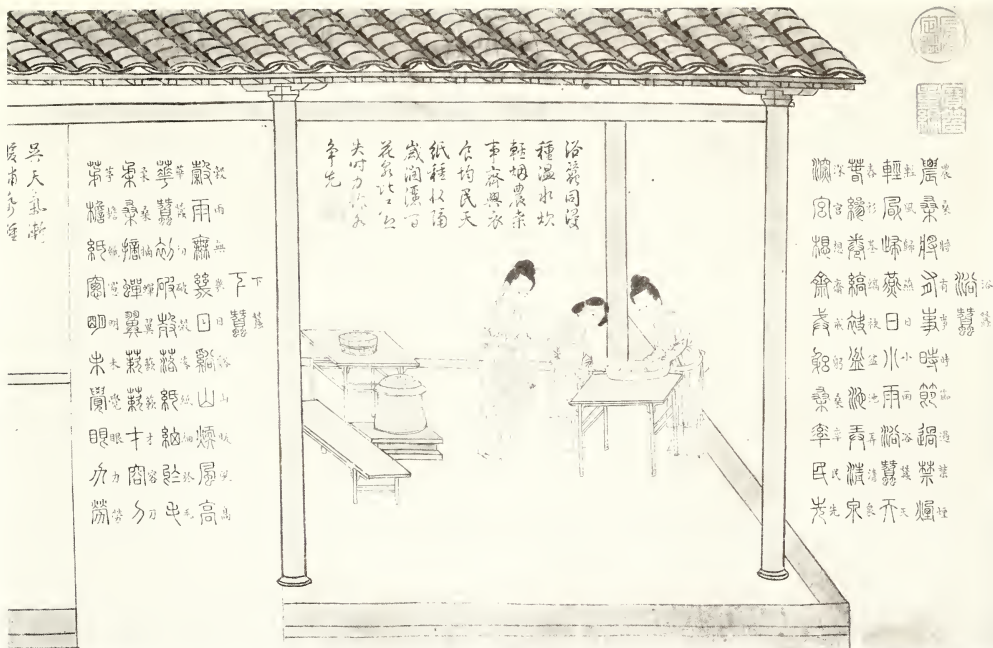 石渠定鑑
寶笈重編
浴蠶
農桑將有事時節過禁煙
輕風歸燕日小雨浴蠶天
春衫卷縞袂盆池弄清泉
深宮想齋戒躬桑率民先
浴蠶同浸
種温水炊
輕烟農桑
事齊興衣
食均民天
紙種收隔
歲潤濯百
花泉比
失時力
爭先
下蠶
穀雨無幾日谿山暖風高
華蠶初破殼落紙細於毛
柔桑摘蟬翼簌簌才容刀
茅檐紙窗明未覺眼力勞
吳天氣漸